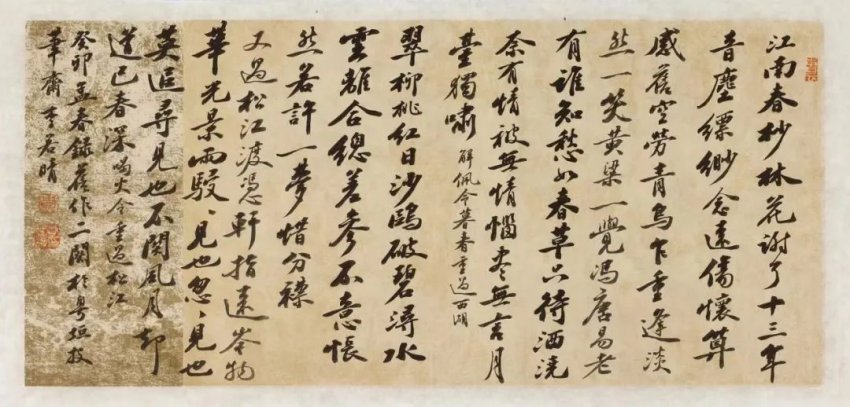 江南春杪林花謝了十三年
音塵縹緲念遠傷懷算
感舊空勞青鳥乍重逢淡
然一笑黃粱一覺馮唐易老
有誰知愁如春草只待酒澆
奈有情被無情惱盡無言月
臺獨嘯 解佩令暮春重過西湖
翠柳桃紅日沙鷗破碧潯水
雲離合總差參不意悵
然若許一夢惜分襟
又過松江渡憑軒指遠岑物
華光景兩駸〻見也忽〻見也
莫追尋見也不關風月卻
道已春深 喝火令重過松江
癸卯孟春錄舊作二闋於粵垣枝
華齋李若晴